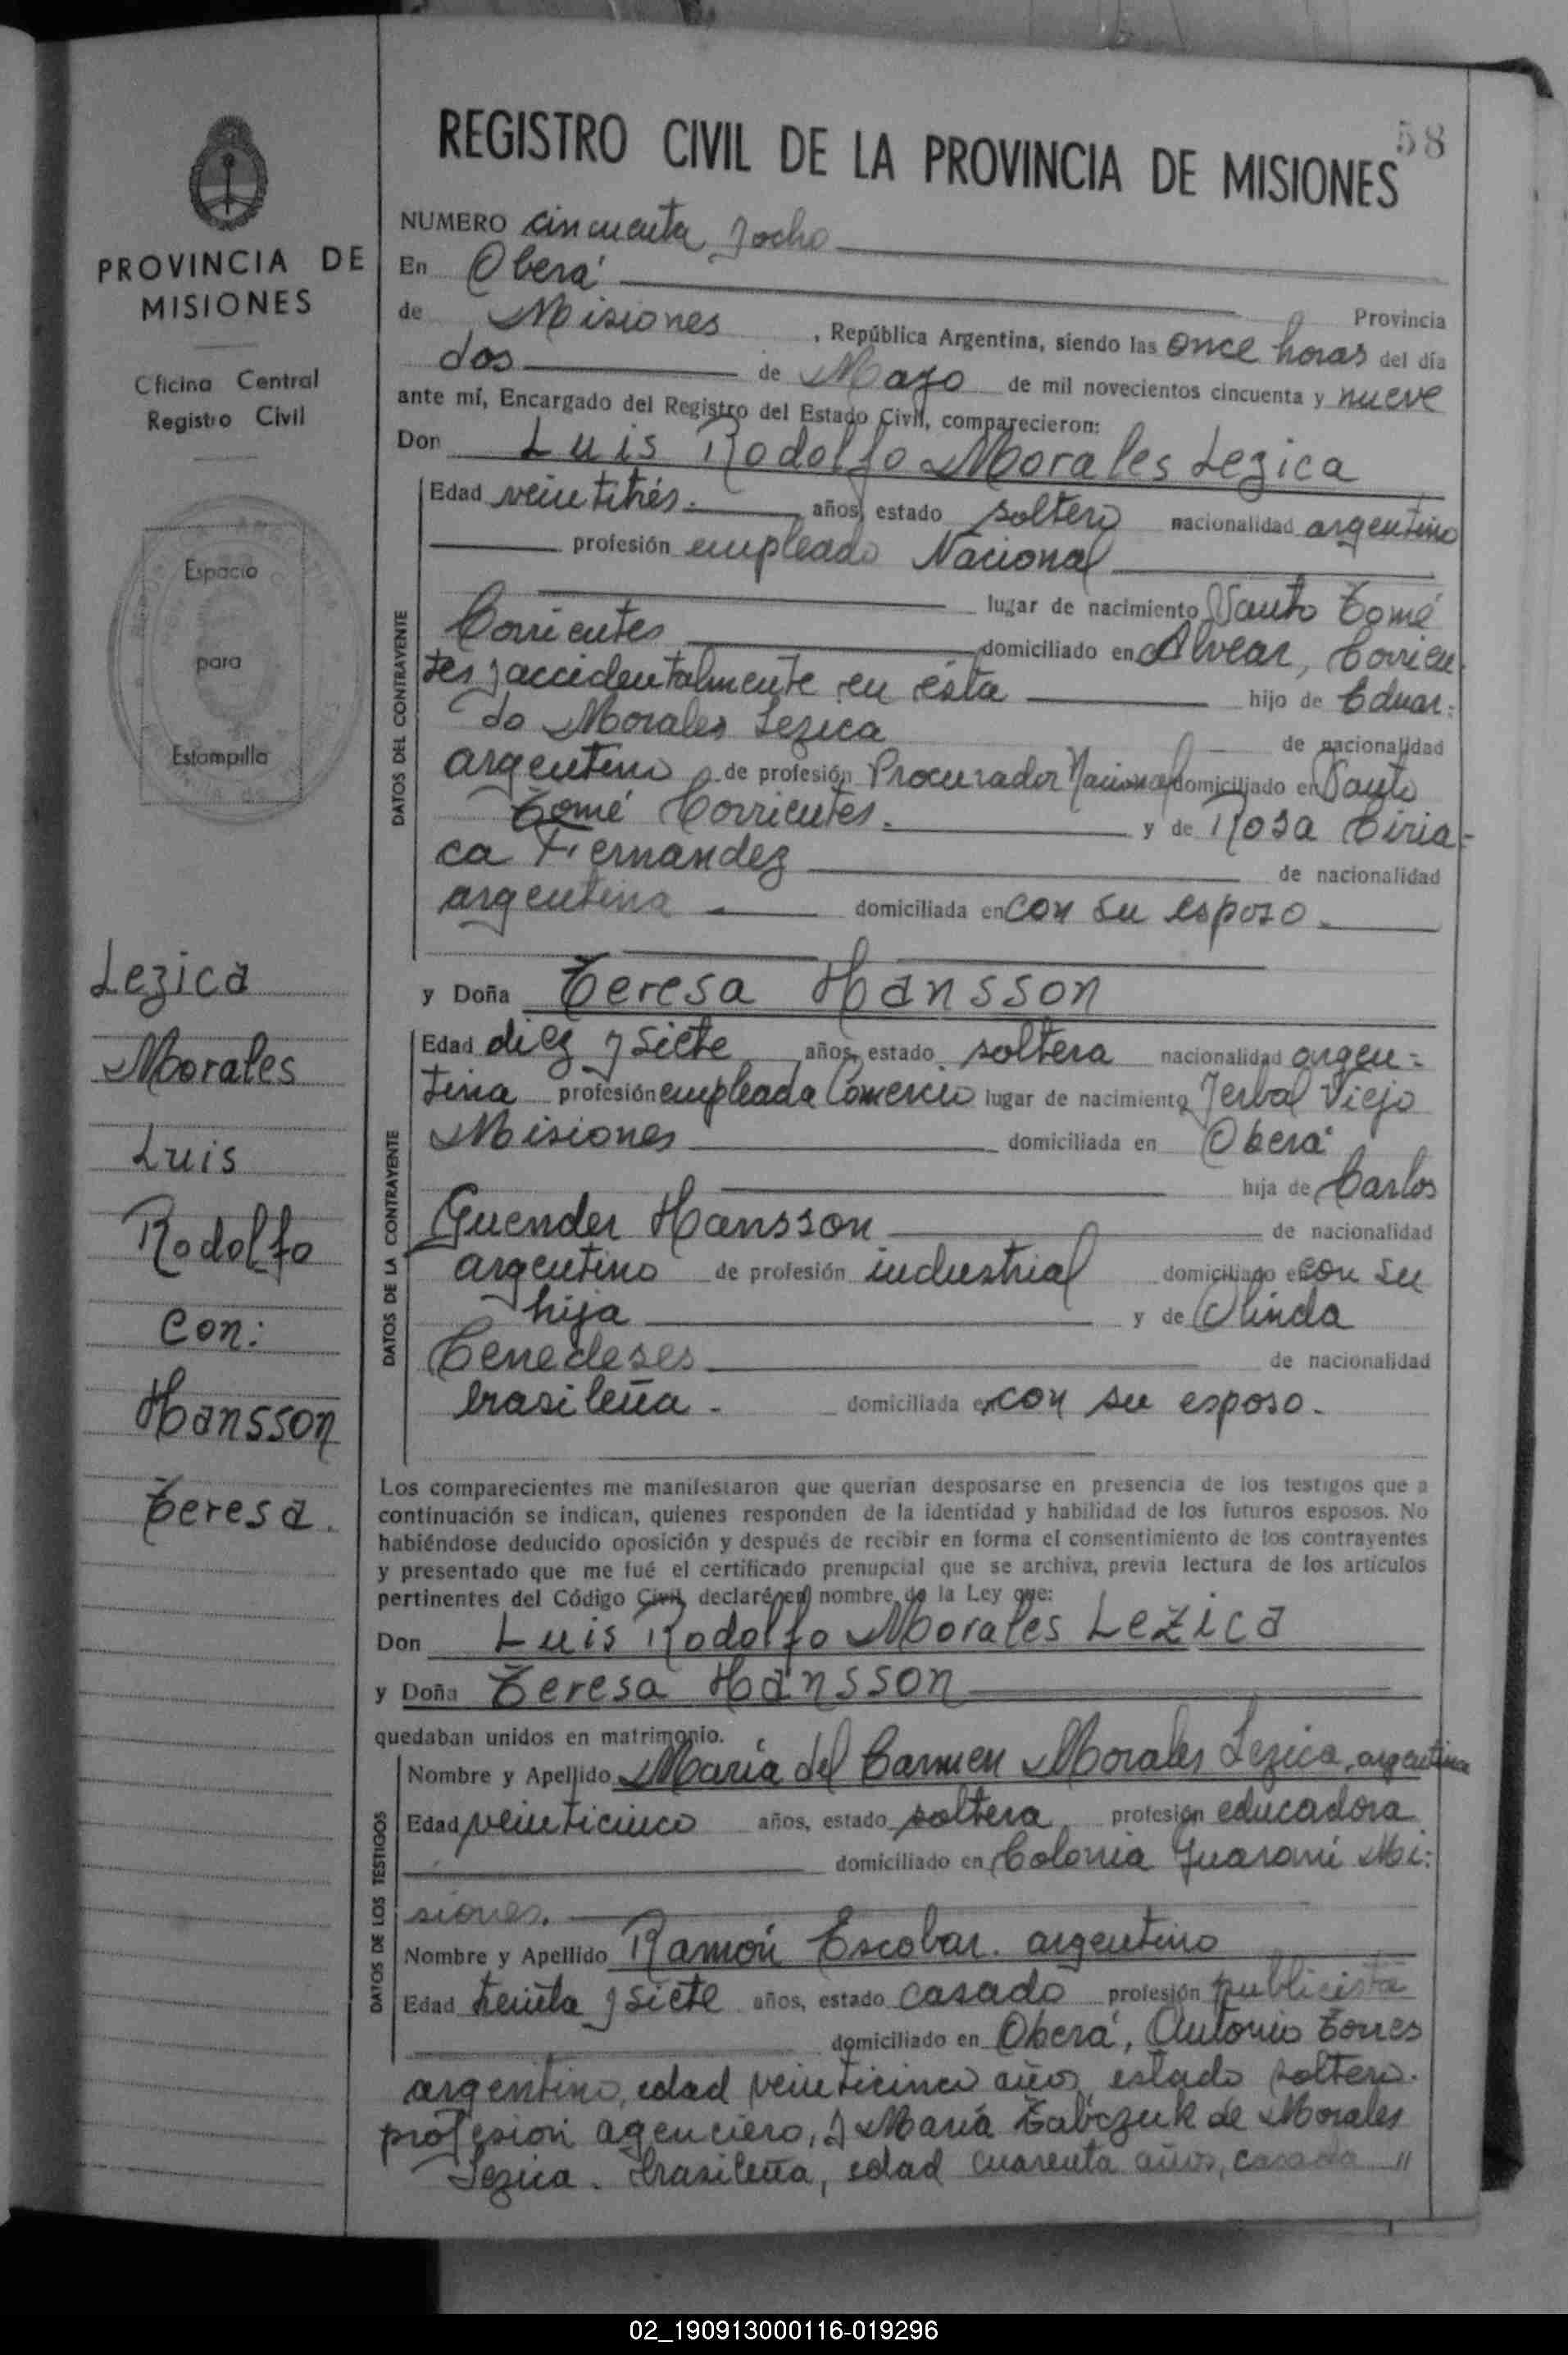 58
REGISTRO CIVIL DE LA PROVINCIA DE MISIONES
PROVINCIA DE
MISIONES
Oficina Central
Registro Civil
Espacio
para
Estampilla
Lezica
Morales
Luis
Rodolfo
con:
Hansson
Teresa.
NUMERO cincuenta y ocho
En Oberá
Provincia
de Misiones, República Argentina, siendo las once horas del día
dos de Mayo de mil novecientos cincuenta y nueve
ante mí, Encargado del Registro del Estado Civil, comparecieron:
Don Luis Rodolfo Morales Lezica
DATOS DEL CONTRAYENTE
Edad veintitrés. años, estado soltero nacionalidad argentino
profesión empleado Nacional
lugar de nacimiento Santo Tomé
Corrientes domiciliado en Alvear, Corrien-
tes y accidentalmente en ésta hijo de Eduar-
do Morales Lezica de nacionalidad
argentino de profesión Procurador Nacional domiciliado en Santo
Tomé Corrientes. y de Rosa Ciria-
ca Fernandez de nacionalidad
argentina domiciliada en con su esposo.
y Doña Teresa Hansson
DATOS DE LA CONTRAYENTE
Edad diez y siete años, estado soltera nacionalidad argen-
tina profesión empleada Comercio lugar de nacimiento Yerbal Viejo
Misiones domiciliada en Oberá
hija de Carlos
Guender Hansson de nacionalidad
argentino de profesión industrial domiciliado en con su
hija y de Olinda
de nacionalidad
brasileña. domiciliada en con su esposo.
Los comparecientes me manifestaron que querían desposarse en presencia de los testigos que a
continuación se indican, quienes responden de la identidad y habilidad de los futuros esposos. No
habiéndose deducido oposición y después de recibir en forma el consentimiento de los contrayentes
y presentado que me fué el certificado prenupcial que se archiva, previa lectura de los artículos
pertinentes del Código Civil, declaré en nombre de la Ley que:
Don Luis Rodolfo Morales Lezica
y Doña Teresa Hansson
quedaban unidos en matrimonio.
DATOS DE LOS TESTIGOS
Nombre y Apellido María del Carmen Morales Lezica, argentina
Edad veinticinco años, estado soltera profesión educadora
domiciliado en Colonia Guaraní Mi-
siones.
Nombre y Apellido Ramón Escobar. argentino
Edad treinta y siete años, estado casado profesión publicista
domiciliado en Oberá, Antonio Torres
argentino, edad veinticinco años, estado soltero.
profesion agenciero, y María Tabczuk de Morales
Lezica. brasileña, edad cuarenta años, casada "
02_190913000116-019296